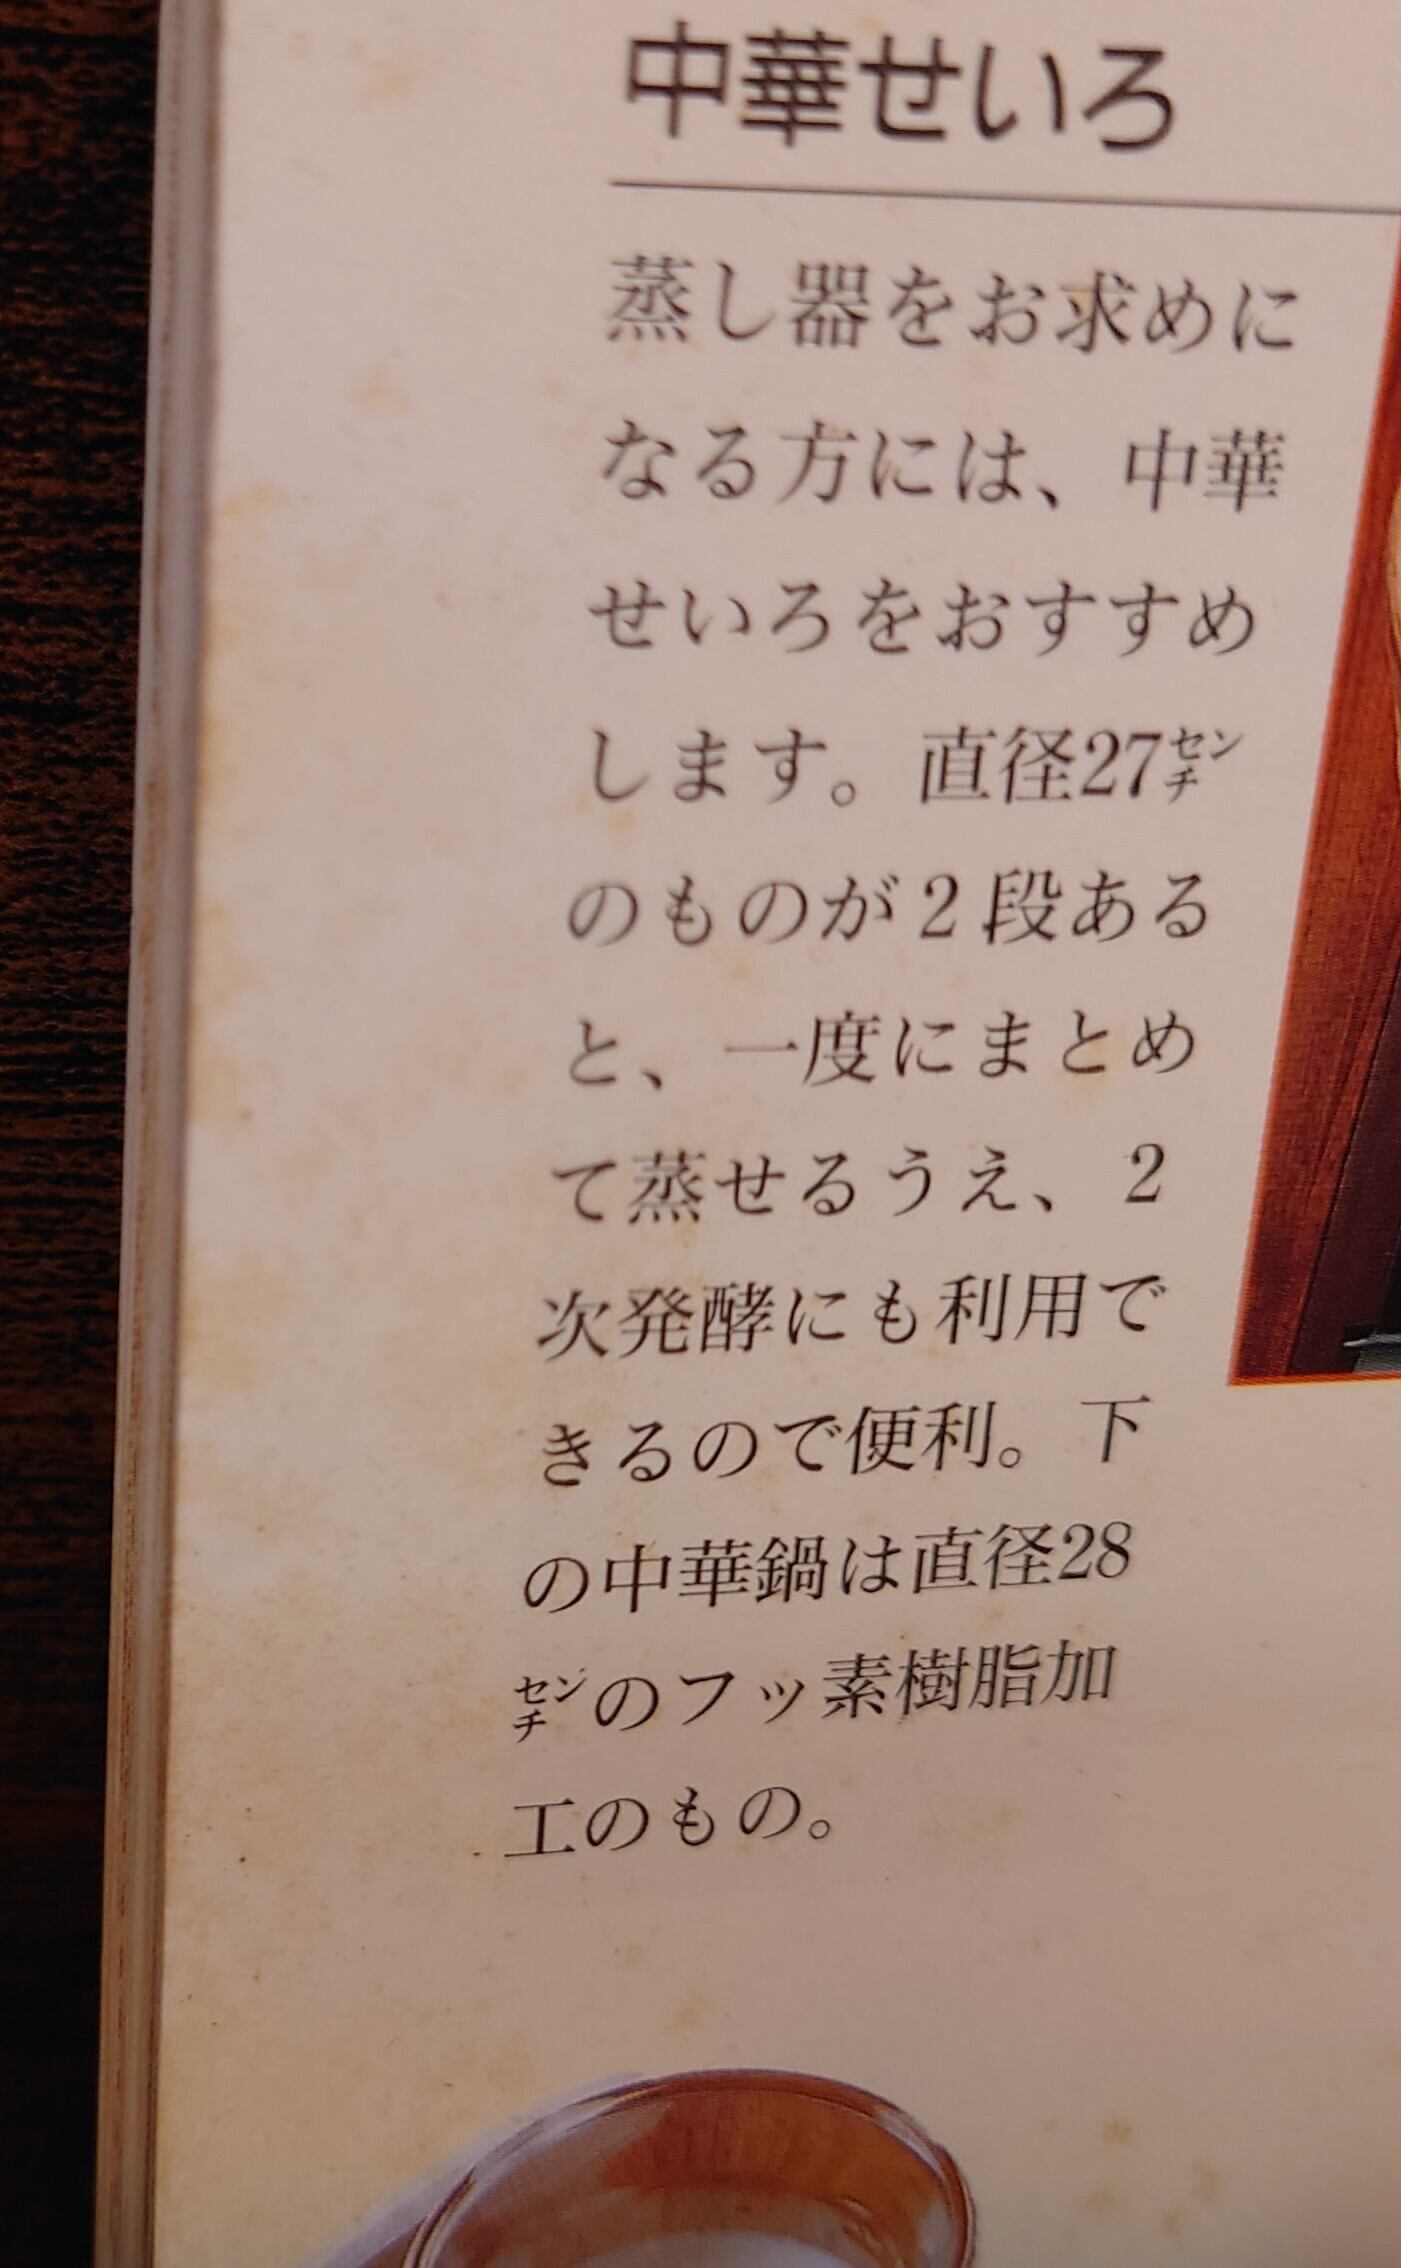 中華せいろ
蒸し器をお求めに
なる方には、中華
せいろをおすすめ
します。直径27センチ
のものが2段ある
と、一度にまとめ
て蒸せるうえ、2
次発酵にも利用で
きるので便利。下
の中華鍋は直径28
センチのフッ素樹脂加
工のもの。